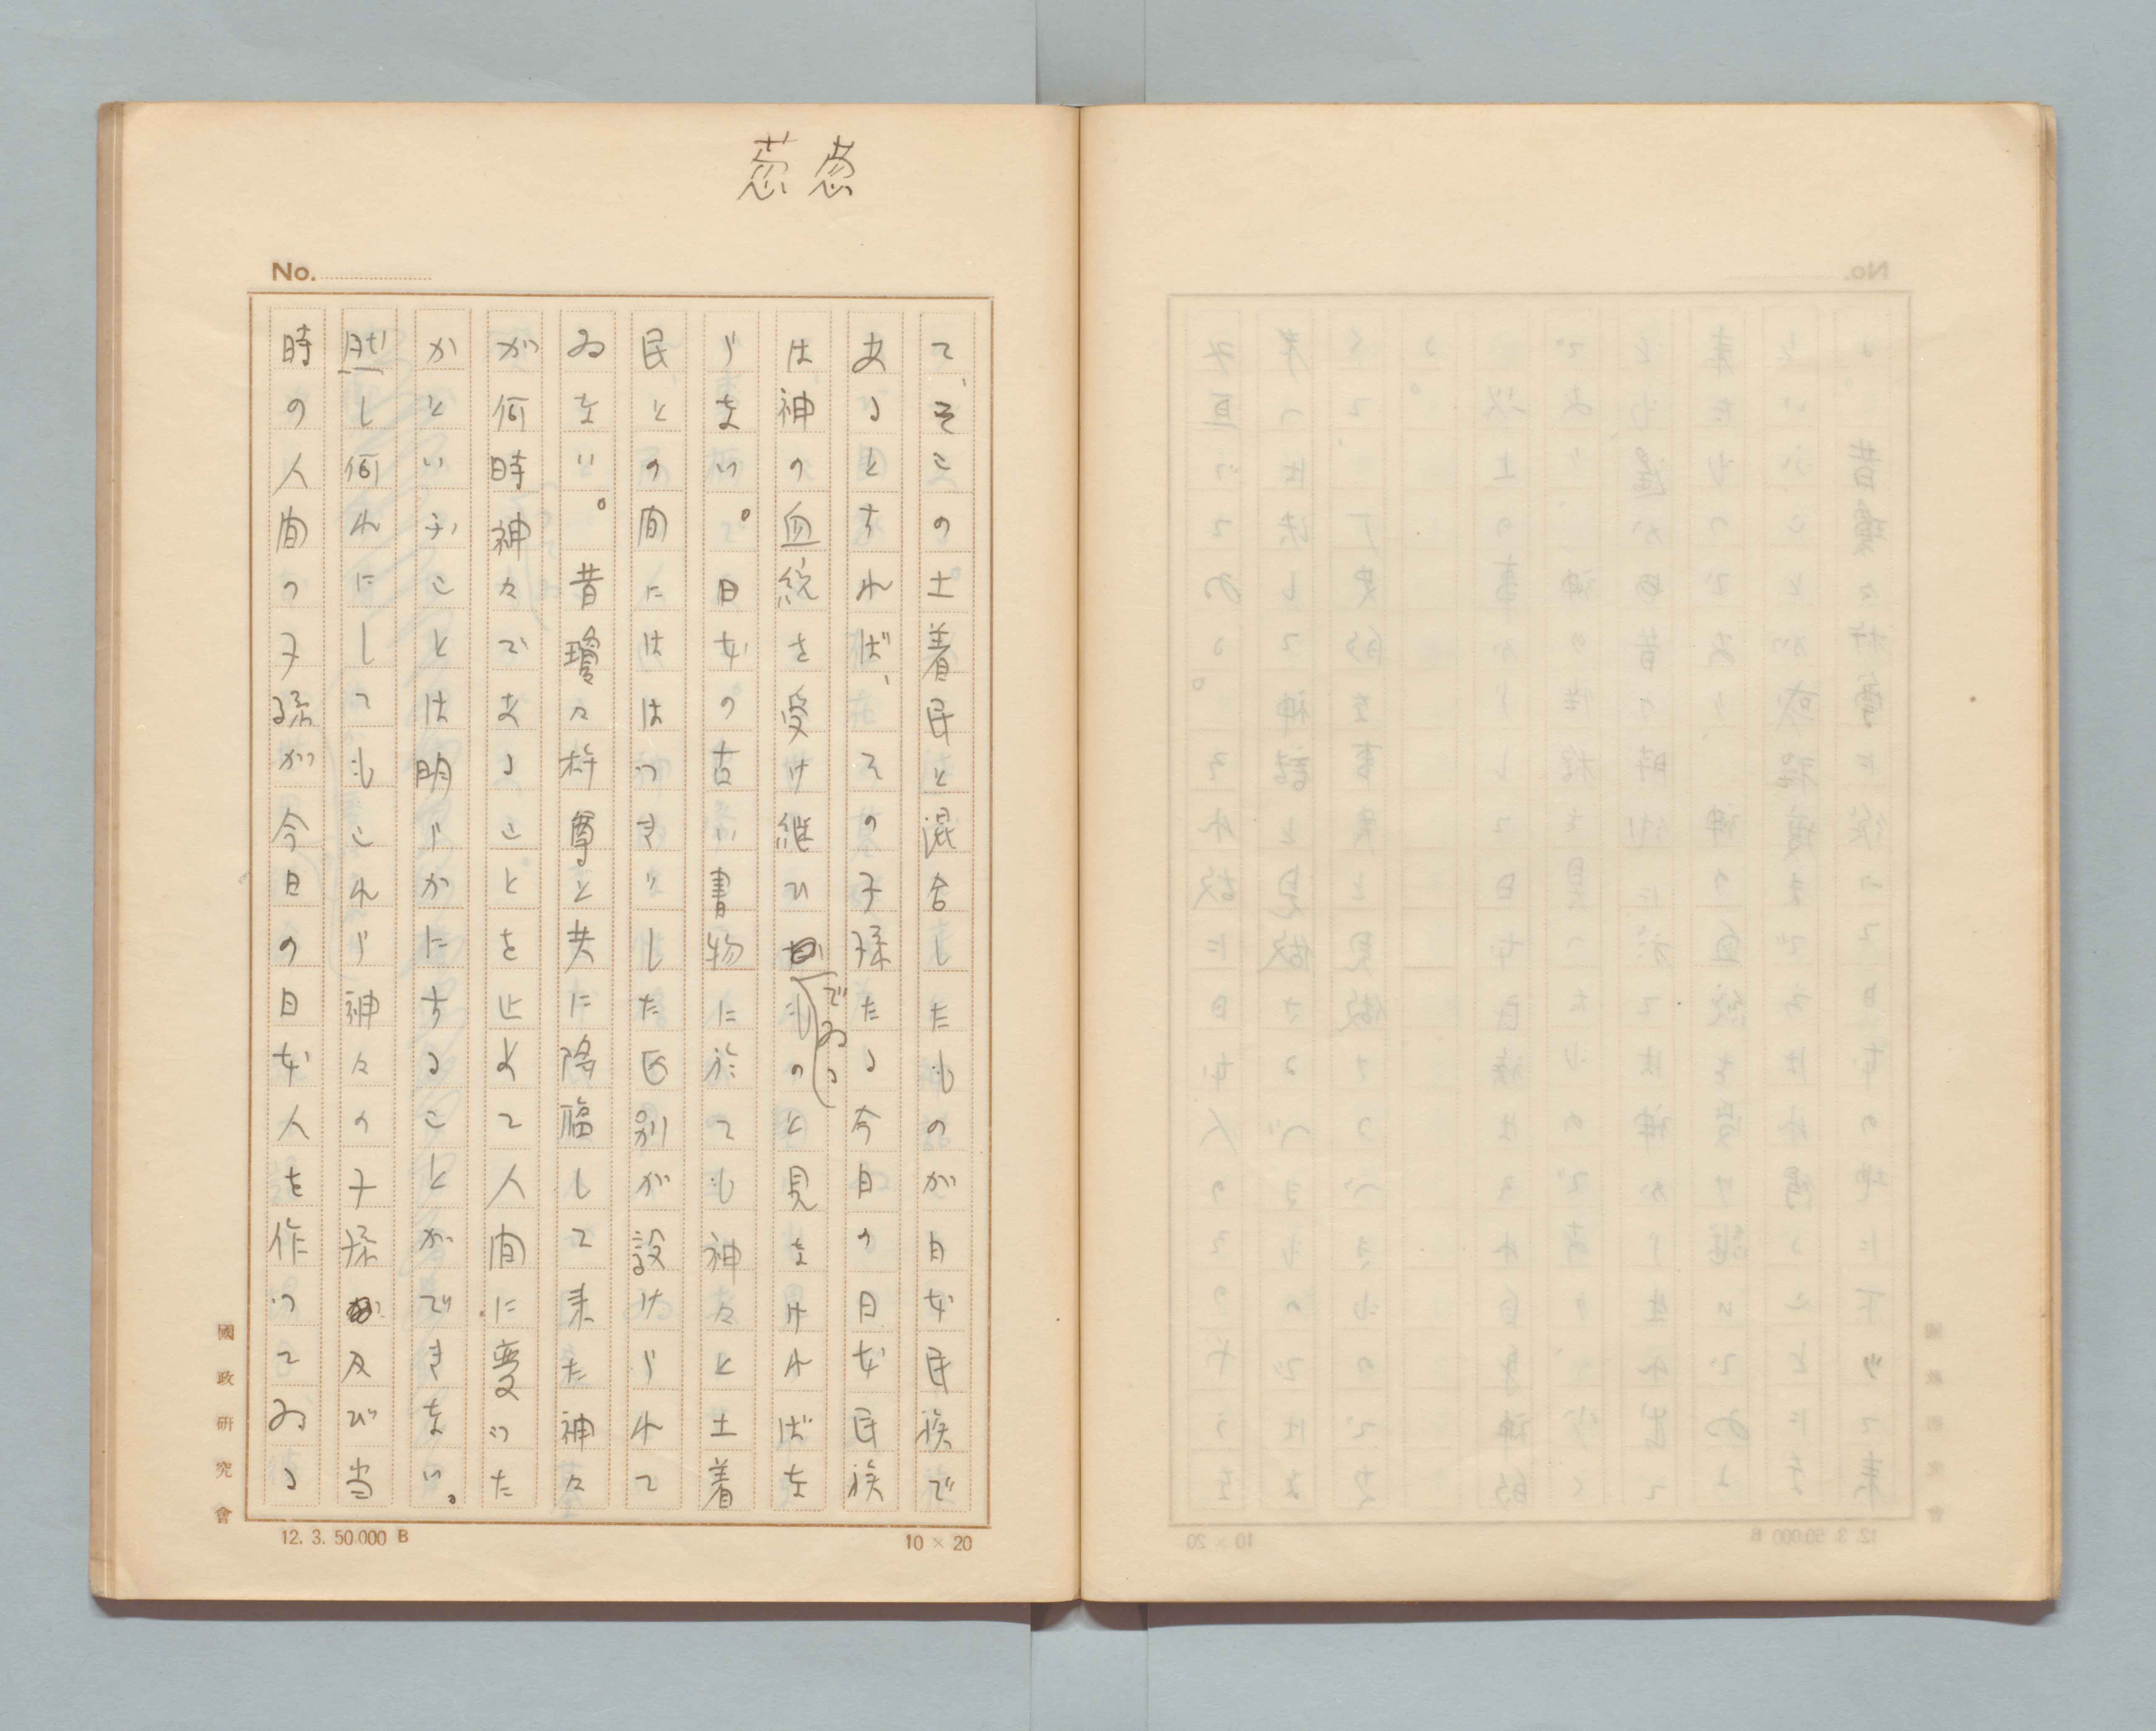 No.
て、そこの土着民と混合したものが日本民族で
あるとすれば、その子孫たる今日の日本民族
は神の血統を受け継ひでゐるものと見なければな
らない。日本の古い書物に於ても神々と土着
民との間にははつきりした区別が設けられて
ゐない。昔瓊々杵尊と共に降臨して来た神々
が何時神々であることを止めて人間に変つた
かといふことは明らかにすることができない。
然し何れにしてもこれら神々の子孫及び当
時の人間の子孫が今日の日本人を作つてゐる
國政研究會
12. 3. 50.000 B
10 × 20